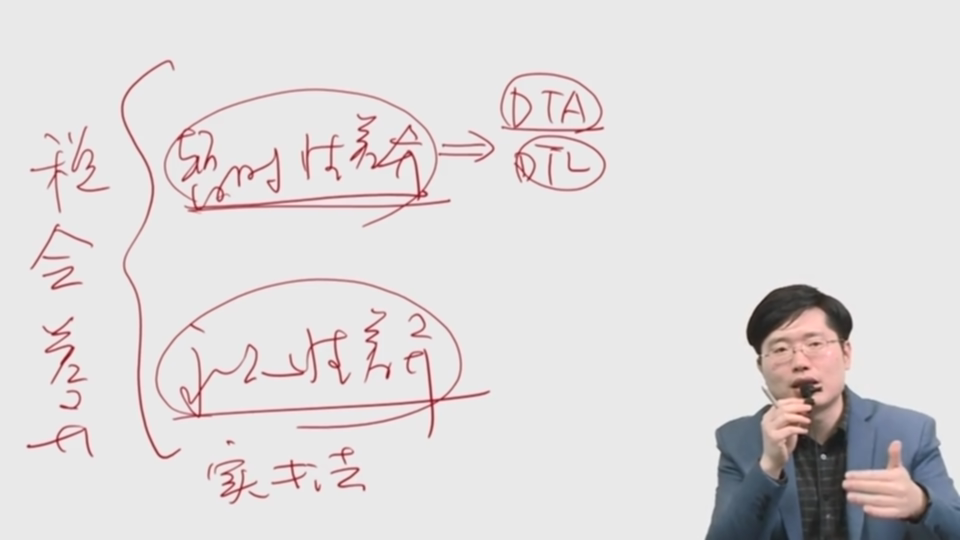 税会差异
暂时性差异 ⇒ DTA
DTL
永久性差异